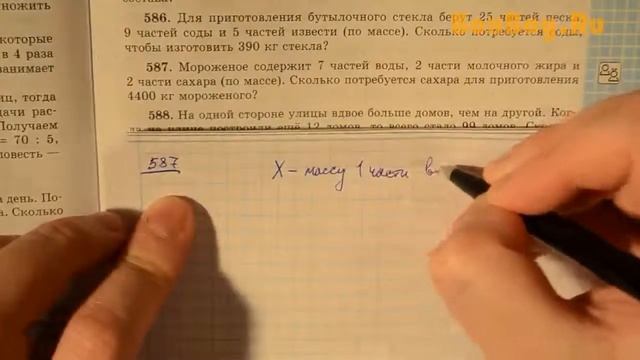 ножить
которые
в 4 раза
занимает
иц, тогда
дачи рас-
Получаем
= 70 : 5,
ловесть —
день. По-
а. Сколько
586. Для приготовления бутылочного стекла берут 25 частей песка,
9 частей соды и 5 частей извести (по массе). Сколько потребуется соды,
чтобы изготовить 390 кг стекла?
587. Мороженое содержит 7 частей воды, 2 части молочного жира и
2 части сахара (по массе). Сколько потребуется сахара для приготовления
4400 кг мороженого?
588. На одной стороне улицы вдвое больше домов, чем на другой. Ког-
на улице построили ещё 12 домов, то всего стало 99 домов.
587
X – массу 1 части в